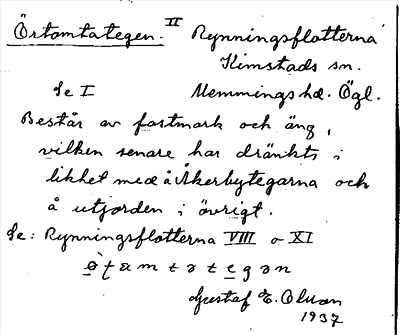 Örtomtategen. II Rynningsflotterna
Kimstads sn.
Se I Memmings hd. Ögl.
Består av fastmark och äng,
vilken senare har dränkts i
likhet med å Åkerbytegarna och
å utjorden i övrigt.
Se: Rynningsflotterna VIII o XI
Gustaf E. Olsson
1937